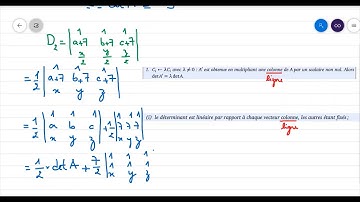 D₂ = | 1 1 1 |
| a+7 b+7 c+7 |
| x/2 y/2 z/2 |
= 1/2 | 1 1 1 |
| a+7 b+7 c+7 |
| x y z |
1. C_i ← λC_i avec λ ≠ 0 : A' est obtenue en multipliant une colonne de A par un scalaire non nul. Alors
det A' = λ det A.
ligne
(i) le déterminant est linéaire par rapport à chaque vecteur colonne, les autres étant fixés ;
ligne
= 1/2 | 1 1 1 | + 1/2 | 1 1 1 |
| a b c | | 7 7 7 |
| x y z | | x y z |
= 1/2 × det A + 7/2 | 1 1 1 |
| 1 1 1 |
| x y z |